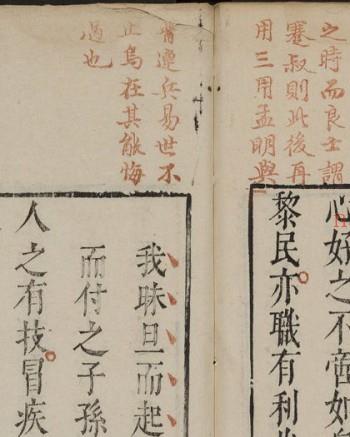 之時而良士謂
蹇叔則此後再
用三用孟明與
心好之不啻如
黎民亦職有利
晉連兵易世不
止烏在其能悔
過也
我昧旦而起
而付之子孫
人之有技冒疾